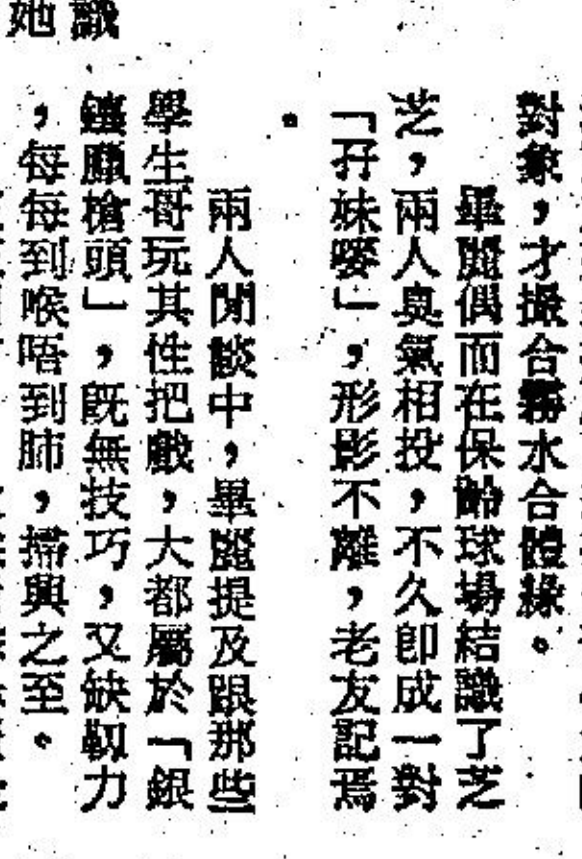 對象，才撮合霧水合體緣。
畢麗偶而在保齡球場結識了芝
芝，兩人臭氣相投，不久卽成一對
「孖妹嘜」，形影不離，老友記焉
。
兩人閒談中，畢麗提及跟那些
學生哥玩其性把戲，大都屬於「銀
鑞槍頭」，既無技巧，又缺韌力
，每每到喉唔到肺，掃興之至。
識
她